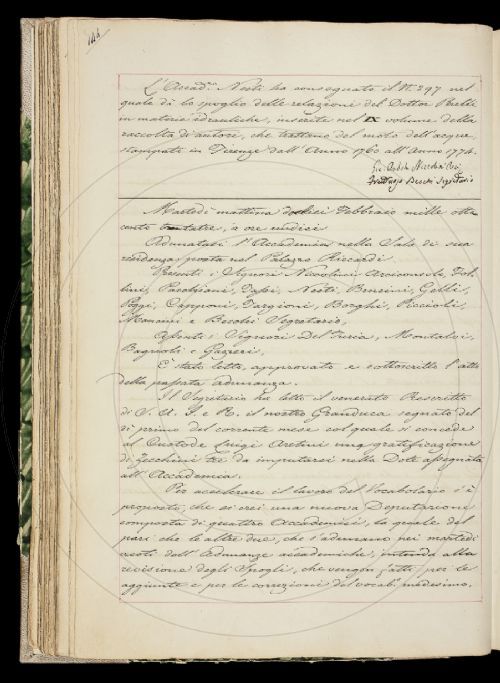 144
L'Accad.co Nesti ha consegnato il N.º 397 nel
quale dà lo spoglio delle relazioni del Dottor Perelli
in materie idrauliche, inserite nel IX volume della
raccolta d'autori, che trattano del moto dell'acque
stampata in Firenze dall'Anno 1760 all'Anno 1774.
Segretario
Martedì mattina dodici Febbraio mille otto
cento trentatre, a ore undici
Adunatasi l'Accademia nella Sala di sua
residenza posta nel Palazzo Riccardi.
Presenti i Signori Niccolini Arciconsolo, Fol-
lini, Nesti, Bencini, Gelli,
Poggi, Capponi, Targioni, Borghi, Piccioli,
Manuzzi e Becchi Segretario,
Assenti i Signori Del Furia, Montalvi,
Bagnoli e Gazzeri.
È stato letto, approvato e sottoscritto l'atto
della passata adunanza.
Il Segretario ha letto il venerato Rescritto
di S. A. I. e R. il nostro Granduca segnato del
dì primo del corrente mese col quale si concede
al Custode Luigi Aretini una gratificazione
di Zecchini tre da imputarsi nella Dote assegnata
all'Accademia.
Per accelerare il lavoro del Vocabolario s'è
proposto che si crei una nuova Deputazione
composta di quattro Accademici, la quale del
pari che le altre due, che s'adunano nei martedì
vuoti dall'Adunanze accademiche, intenda alla
revisione degli Spogli, che vengon fatti per le
aggiunte e per le correzioni del vocab.º medesimo.